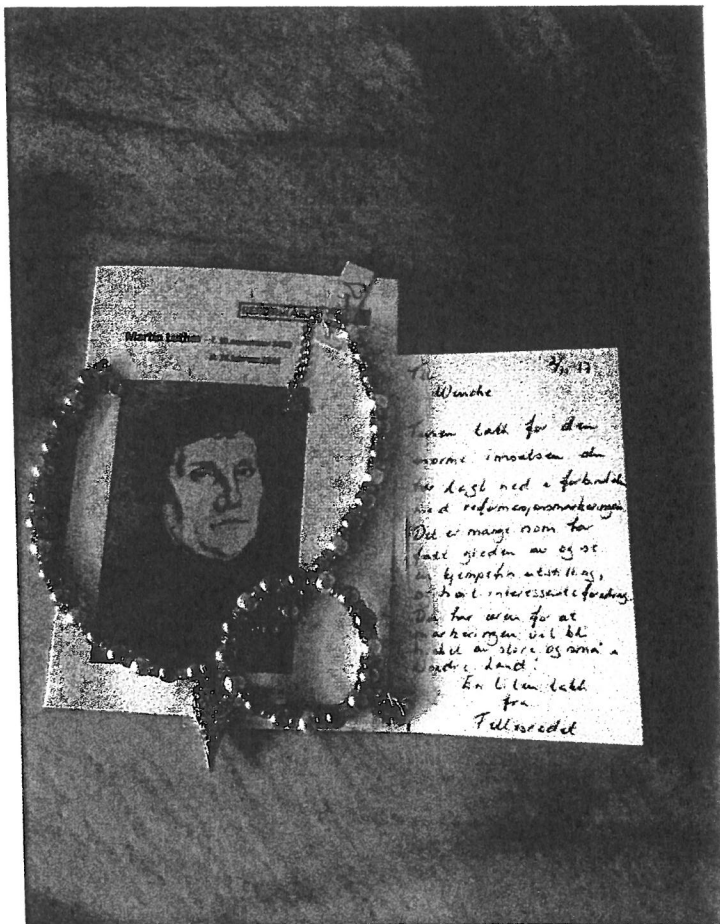 Martin Luther
Til 2/11-17
Wenche
Tusen takk for den
enorme innsatsen du
har lagt ned i forbindelse
med reformasjonsmarkeringen.
Det er mange som har
fått gleden av og se
en kjempefin utstilling,
og hørt interessante foredrag.
Du har æren for at
markeringen vil bli
husket av store og små i
land!
En liten takk
fra
Fellesrådet